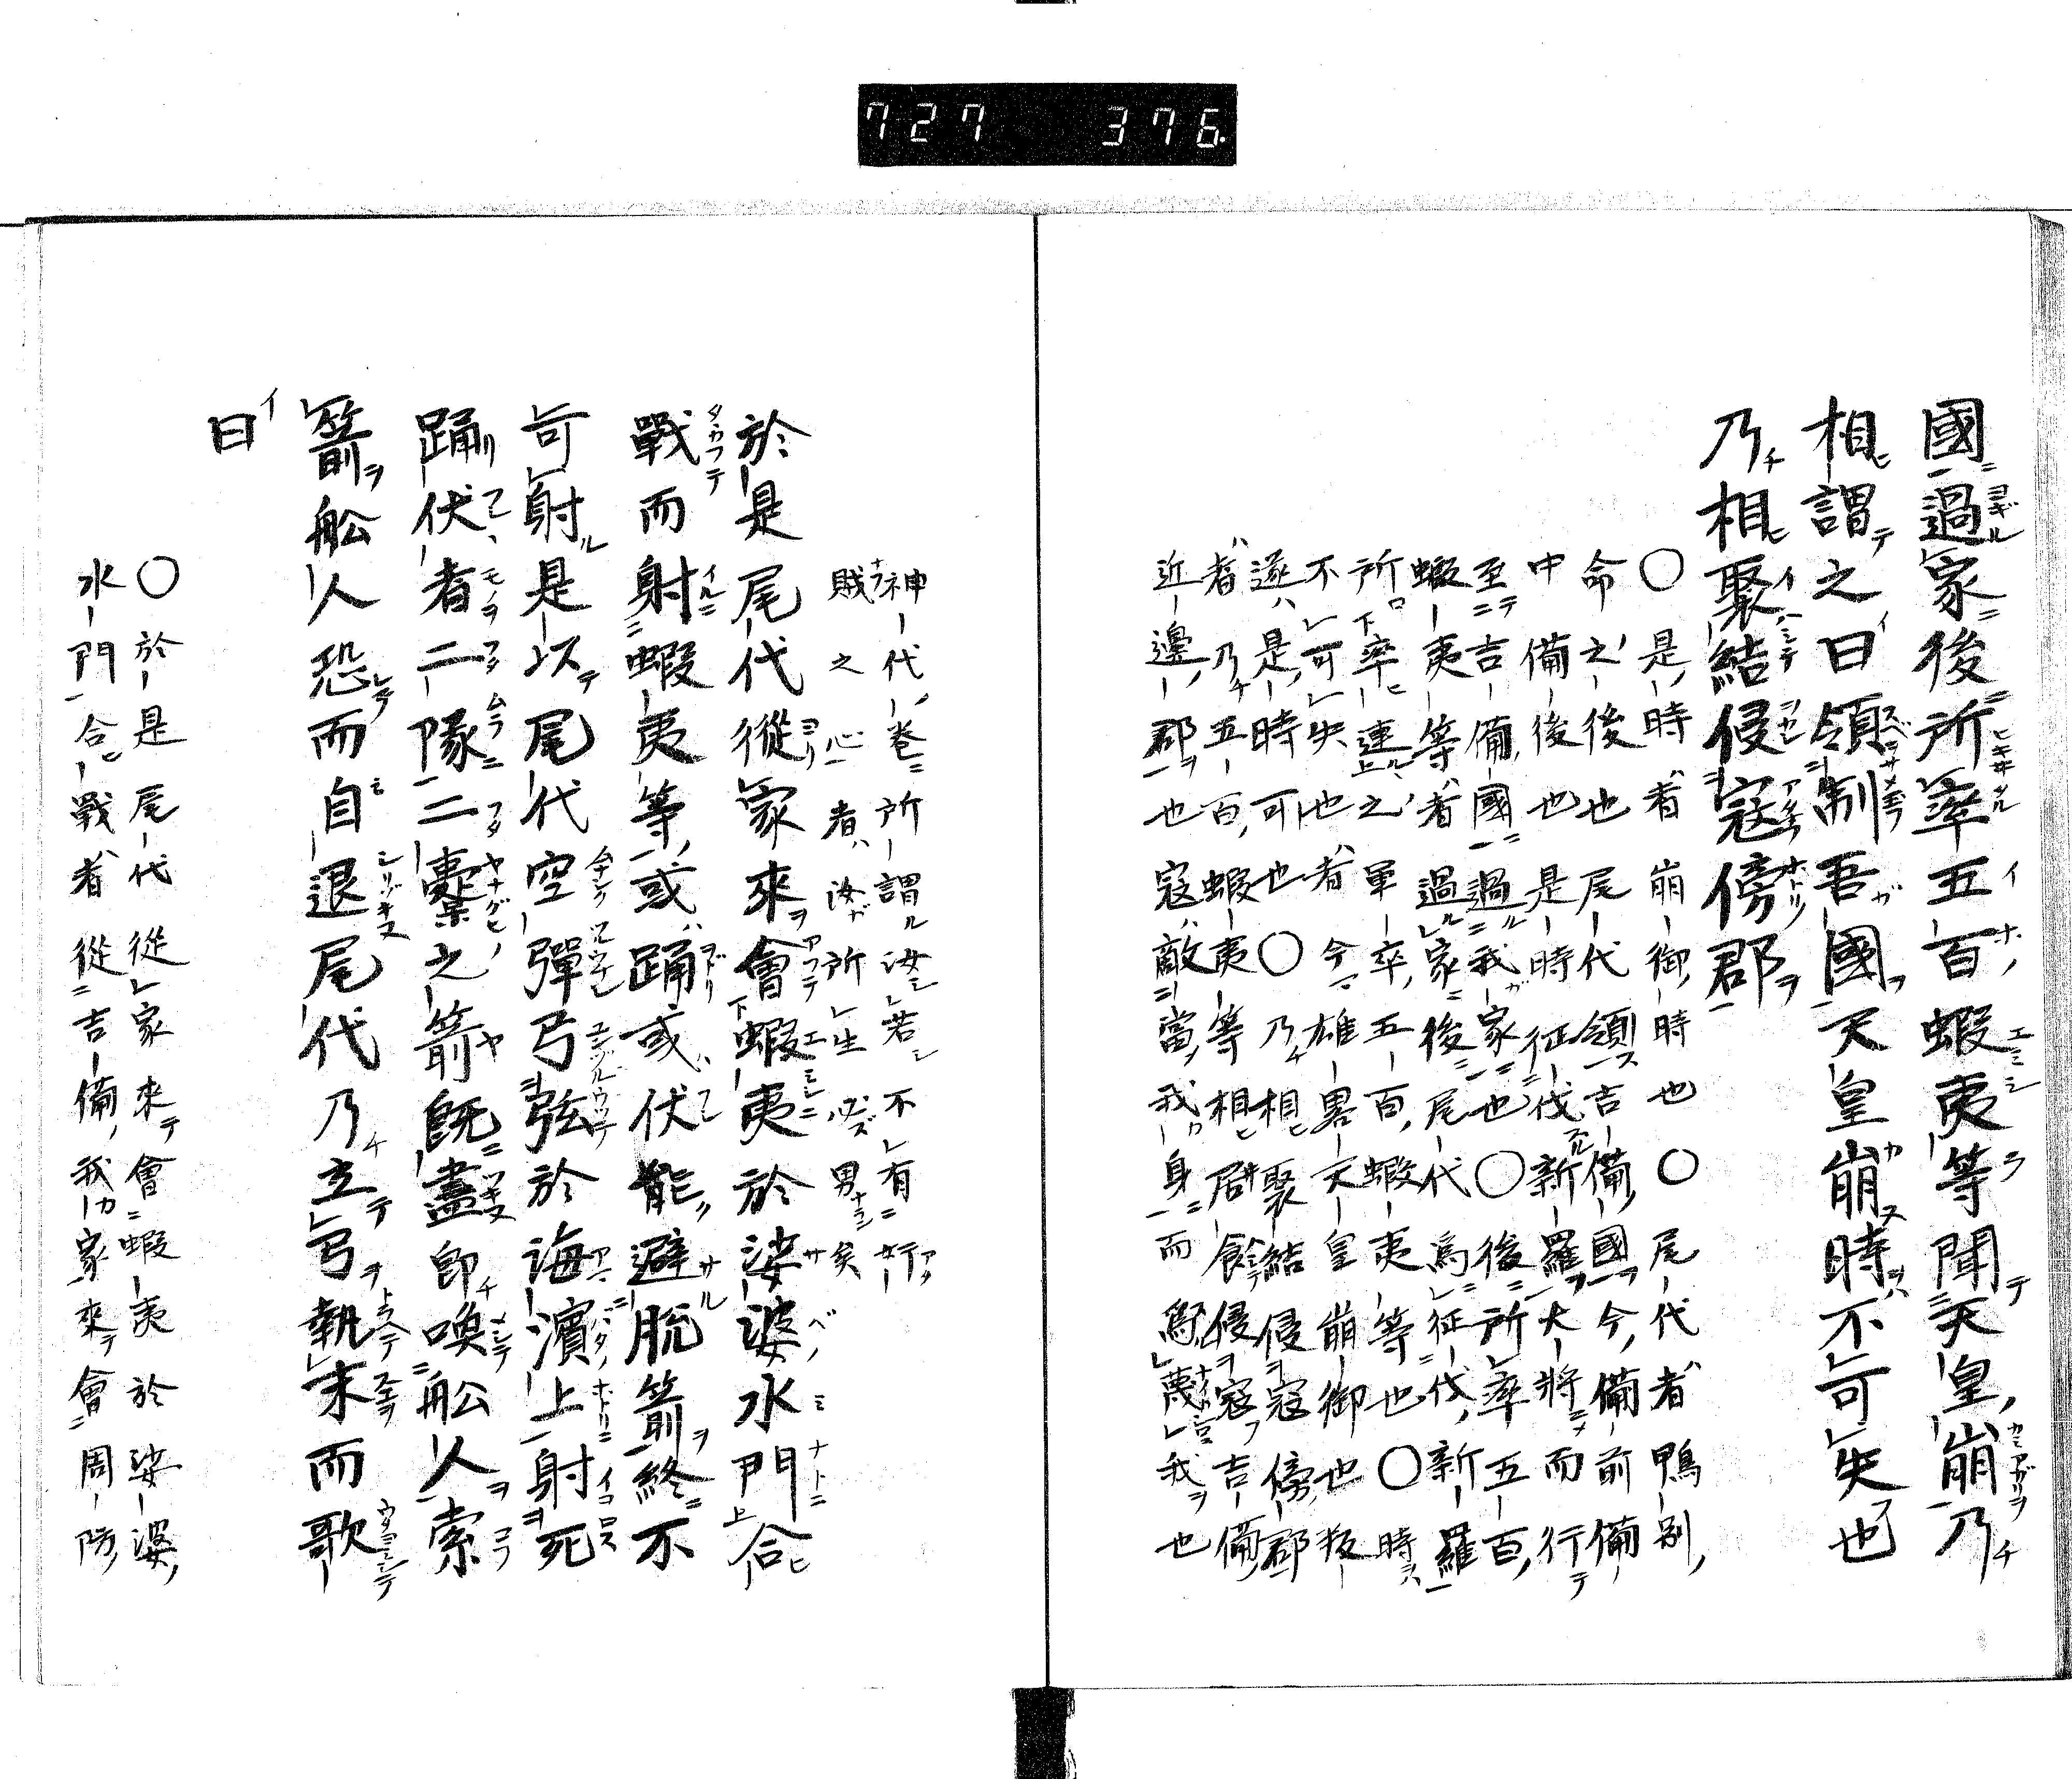 727 376.
國過家後所率五百蝦夷等聞天皇崩乃
相謂之曰領制吾國天皇崩時不可失也
乃相聚結侵寇傍郡
○是時者崩御時也○尾代者鴨別
命之後也尾代領吉備國今備前備
中備後也是時征伐新羅大將而行
至吉備國過我家也○後所率五百
蝦夷等者過家後尾代爲征伐新羅
所率連之軍卒五百蝦夷等也○時
不可失也者今雄畧天皇崩御也叛
逆是時可也○乃相聚結侵寇傍郡
者乃五百蝦夷等相居餘侵寇吉備
近邊郡也寇敵當我身而爲蔑我也
神代卷所謂汝若不有行
賊之心者汝所生必男矣
於是尾代從家來會蝦夷於娑婆水門合
戰而射蝦夷等或踊或伏能避脱箭終不
可射是以尾代空彈弓弦於海濱上射死
踊伏者二隊二櫜之箭既盡卽喚舩人索
箭舩人恐而自退尾代乃立弓執末而歌
曰
○於是尾代從家來會蝦夷於娑婆
水門合戰者從吉備我家來會周防